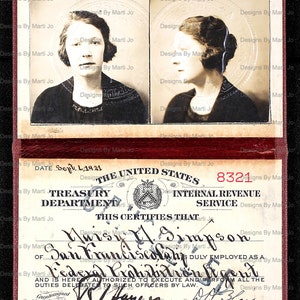 Designs By Marti Jo
DATE Sept. 1, 1921
THE UNITED STATES
8321
TREASURY DEPARTMENT
INTERNAL REVENUE SERVICE
THIS CERTIFIES THAT
Daisy D. Simpson
San Francisco, Calif
DULY EMPLOYED AS A
Federal Prohibition Agent
AND IS HEREBY AUTHORIZED TO EXECUTE AND PERFORM ALL THE
DUTIES DELEGATED TO SUCH OFFICERS BY LAW.